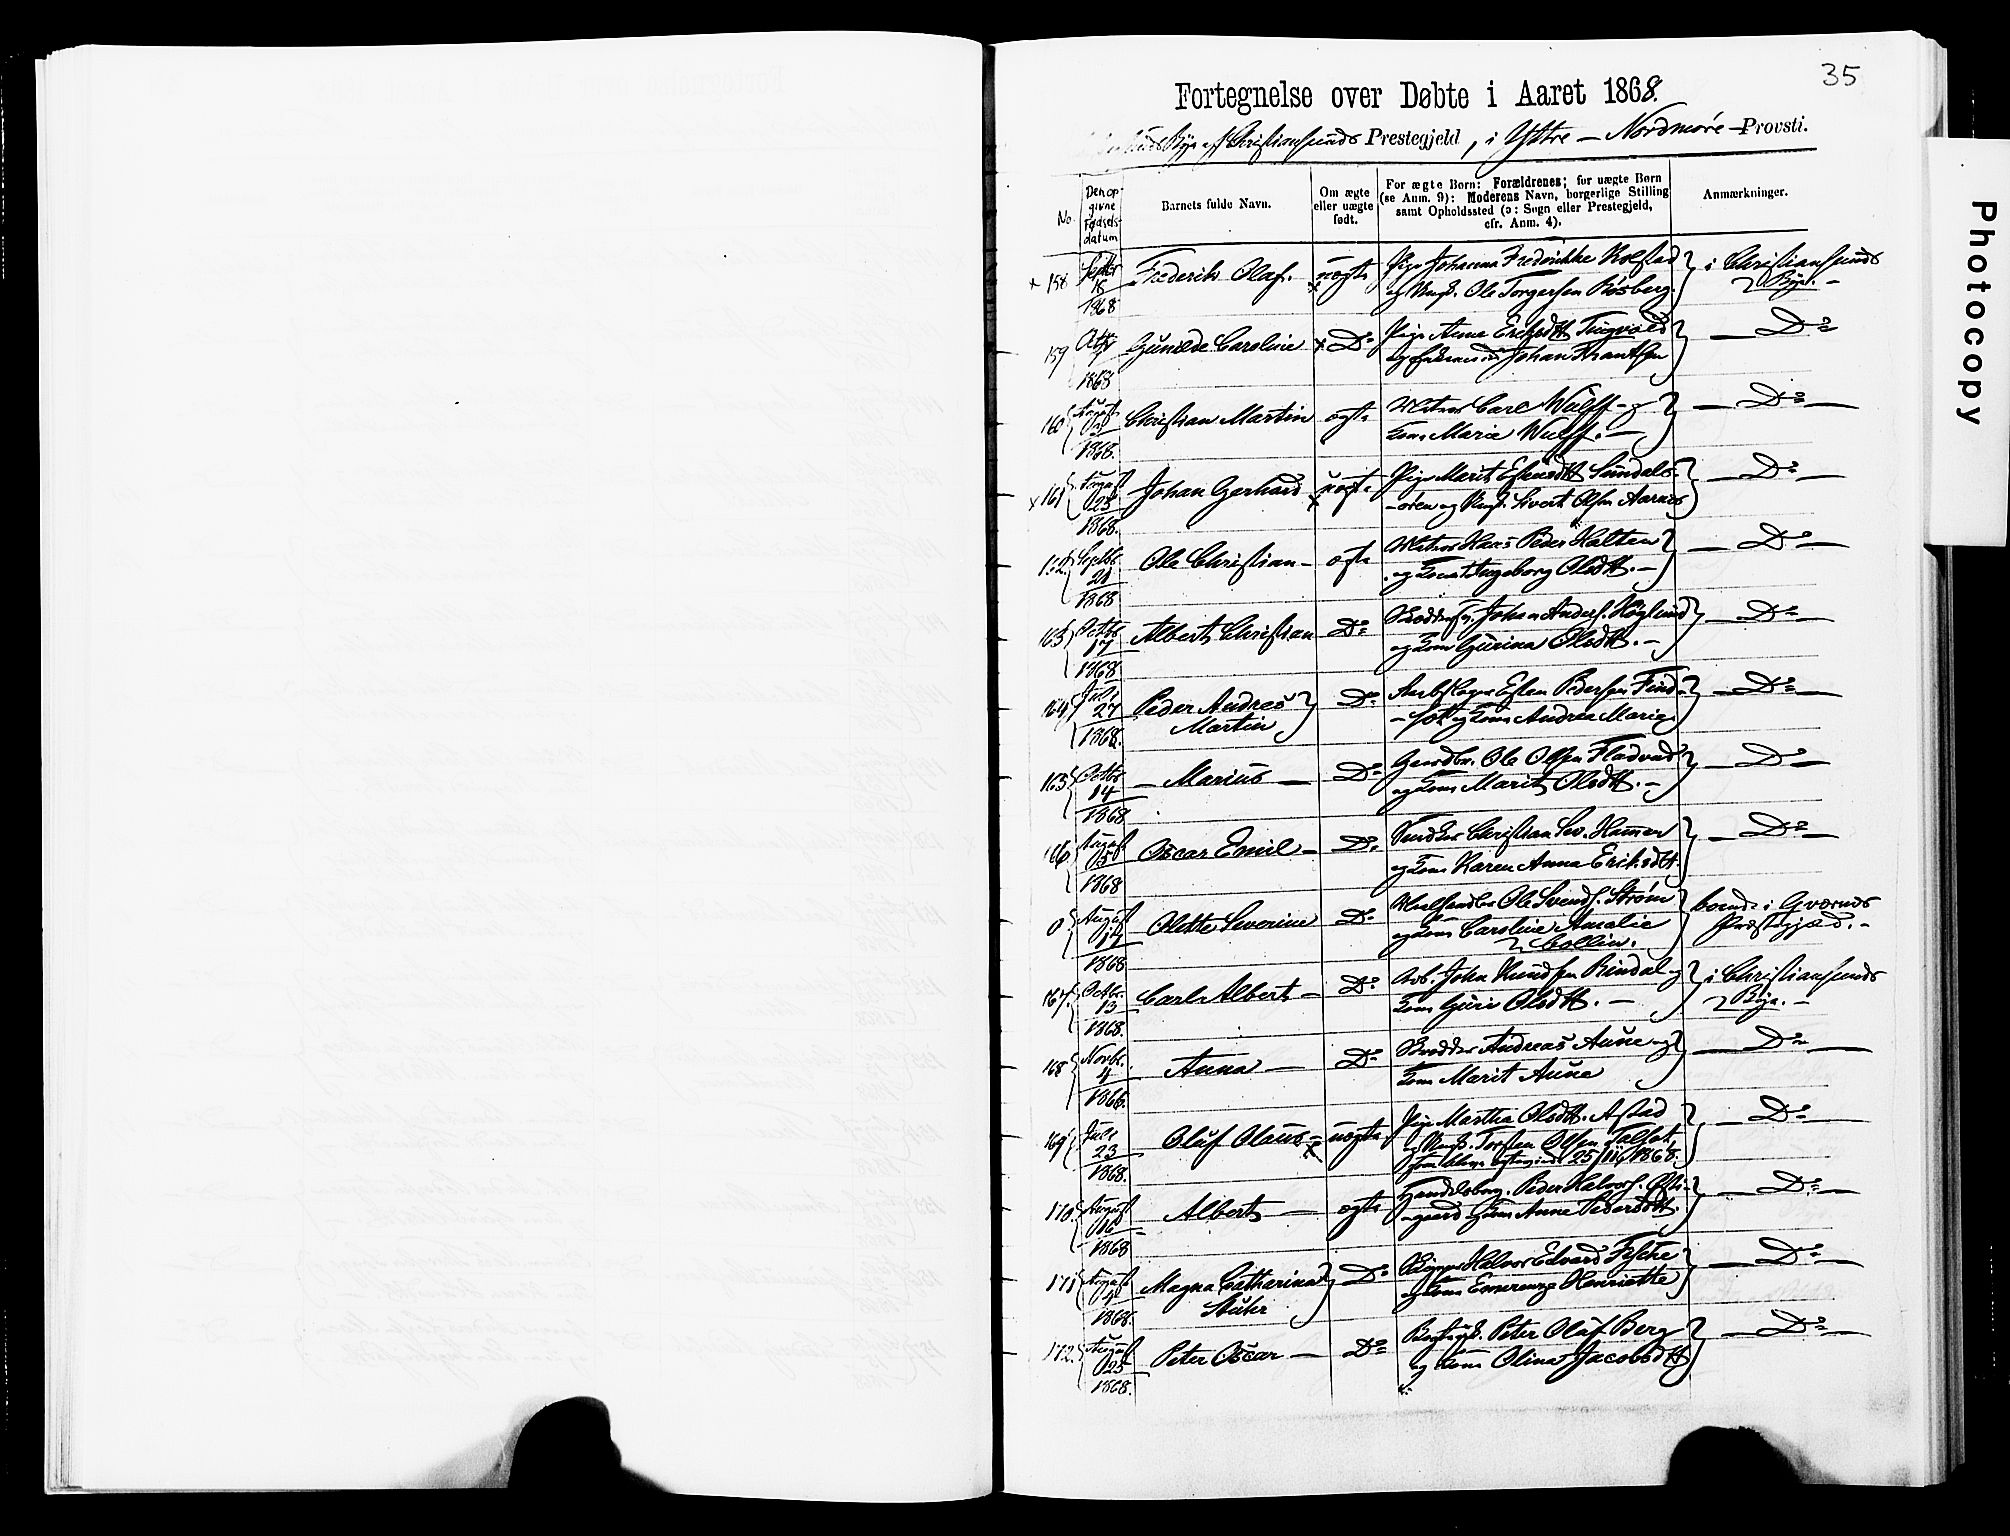 35
Fortegnelse over Døbte i Aaret 1868.
Bye af Christianssunds Prestegjeld, i Yttre - Nordmøre - Provsti.
No.
Den opgivne Fødselsdatum
Barnets fulde Navn.
Om ægte eller uægte født.
For ægte Børn: Forældrenes; for uægte Børn (se Anm. 9): Moderens Navn, borgerlige Stilling samt Opholdssted (ɔ: Sogn eller Prestegjeld, cfr. Anm. 4).
Anmærkninger.
x 158 Septbr 18 1868 Frederik Olaf. uægte Pige Johanna Fredrikke Rolstad
og Ungk. Ole Torgersen Røsberg. } i Christianssunds Bye. -
159 Octbr 1868 Gunilde Caroline x Do Pige Anne Eriksdtt Tingvold
og Johan Frantzen } - Do -
160 August 1868. Christian Martin ægte Matros Carl Wulff - og
Kone Marie Wulff. - } - Do -
x 161 August 25 1868. Johan Gerhard x uægte Pige Marit Estensdtt Sundals-
-øren og Ungk. Sivert Olsen Aarnes } - Do -
162 Septbr. 21 1868 Ole Christian - ægte Matros Hans Peder Halten
og Kone Ingeborg Olsdtt. - } - Do -
163 Octbr 17 1868 Albert Christian Do Johan Anders. Høglund
og Kone Gurina Olsdtt. - } - Do -
164 Juli 27 1868. Peder Andreas Martin } Do Esten Pedersen Find-
og Kone Andrea Marie } - Do -
165 Octbr 14 1868 - Marius - Do Gaardbr. Ole Olsen Fladvad
og Kone Marit Olsdtt. - } - Do -
166 August 1868 Oscar Emil - Do Snedker Christian Sev. Hammer
og Kone Karen Anna Eriksdtt. } - Do -
0 August 14 1868 Olette Severine Do Ole Svends. Strøm
og Kone Caroline Amalie
Collin. } boende i Qværnes
Præstegjeld. -
167. Octbr. 13 1868. Carl Albert - Do Arb. John Knudsen Rindal og
Kone Guri Olsdtt. - } i Christianssunds
Bye. -
168 Novbr. 4 1868. Anna - Do Andreas Aune og
Kone Marit Aune } - Do -
169 Juli 23 1868. Oluf Olaus - x uægte Pige Martha Olsdtt. Astad
og Ungk. Torsten Olsen
25/ 1868. } - Do -
170 August 16 1868 Albert - ægte Handelsborg. Peder Halvors.
-gaard og Kone Anne Pedersdtt. } - Do -
171 August 1868. Magna Catharina Stuhr } Do Skipper Halvor Edvard
og Kone Emerenze Henriette } - Do -
172. August 25 1868. Peter Oscar - Do Peter Oluf Berg
og Kone Olina Jacobsdtt } - Do -
Photocopy